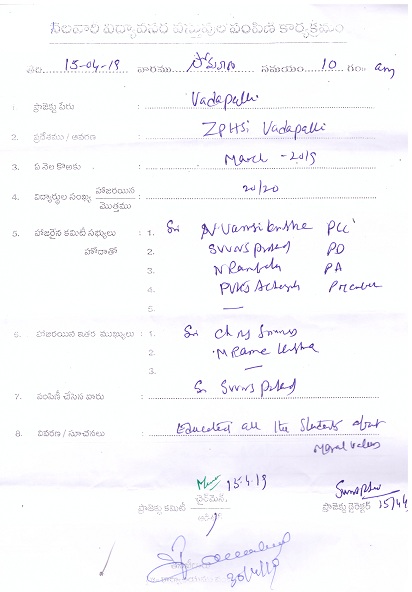 నెలవారి విద్యావసర వస్తువుల పంపిణి కార్యక్రమం
తేది 15-04-19 వారము సోమవారం సమయం 10 గం am
1. ప్రాజెక్టు పేరు : Vadapalli
2. ప్రదేశము / ఆవరణ : ZPHS Vadapalli
3. ఏ నెల కొఱకు : March - 2019
4. విద్యార్థుల సంఖ్య హాజరయిన / మొత్తము : 20/20
5. హాజరైన కమిటీ సభ్యులు : 1. Sri N Vamsi Krishna PCC
హోదాతో 2. SVVNS Prasad PD
3. PA
4. PVKS
5. —
6. హాజరయిన ఇతర ముఖ్యులు : 1. Sri Ch
2. M Rama Krishna
3. —
7. పంపిణీ చేసిన వారు : Sri SVVNS Prasad
8. వివరణ / సూచనలు : Educated all the Students about
Moral Values
15.4.19
ప్రాజెక్టు కమిటీ ఛైర్మెన్, ప్రాజెక్టు డైరెక్టర్ 15/4